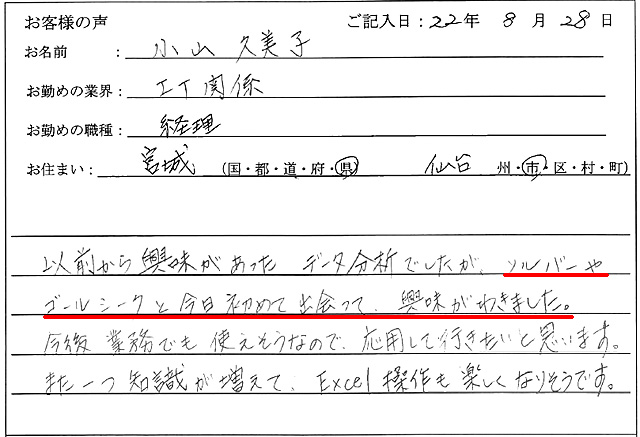 お客様の声 ご記入日:22年 8 月 28 日
お名前 : 小山 久美子
お勤めの業界: IT関係
お勤めの職種: 経理
お住まい: 宮城 (国・都・道・府・県) 仙台 州・市・区・村・町)
以前から興味があった データ分析でしたが、ソルバーや
ゴールシークと今日初めて出会って、興味がわきました。
今後業務でも使えそうなので、応用して行きたいと思います。
また一つ知識が増えて、Excel操作も楽しくなりそうです。